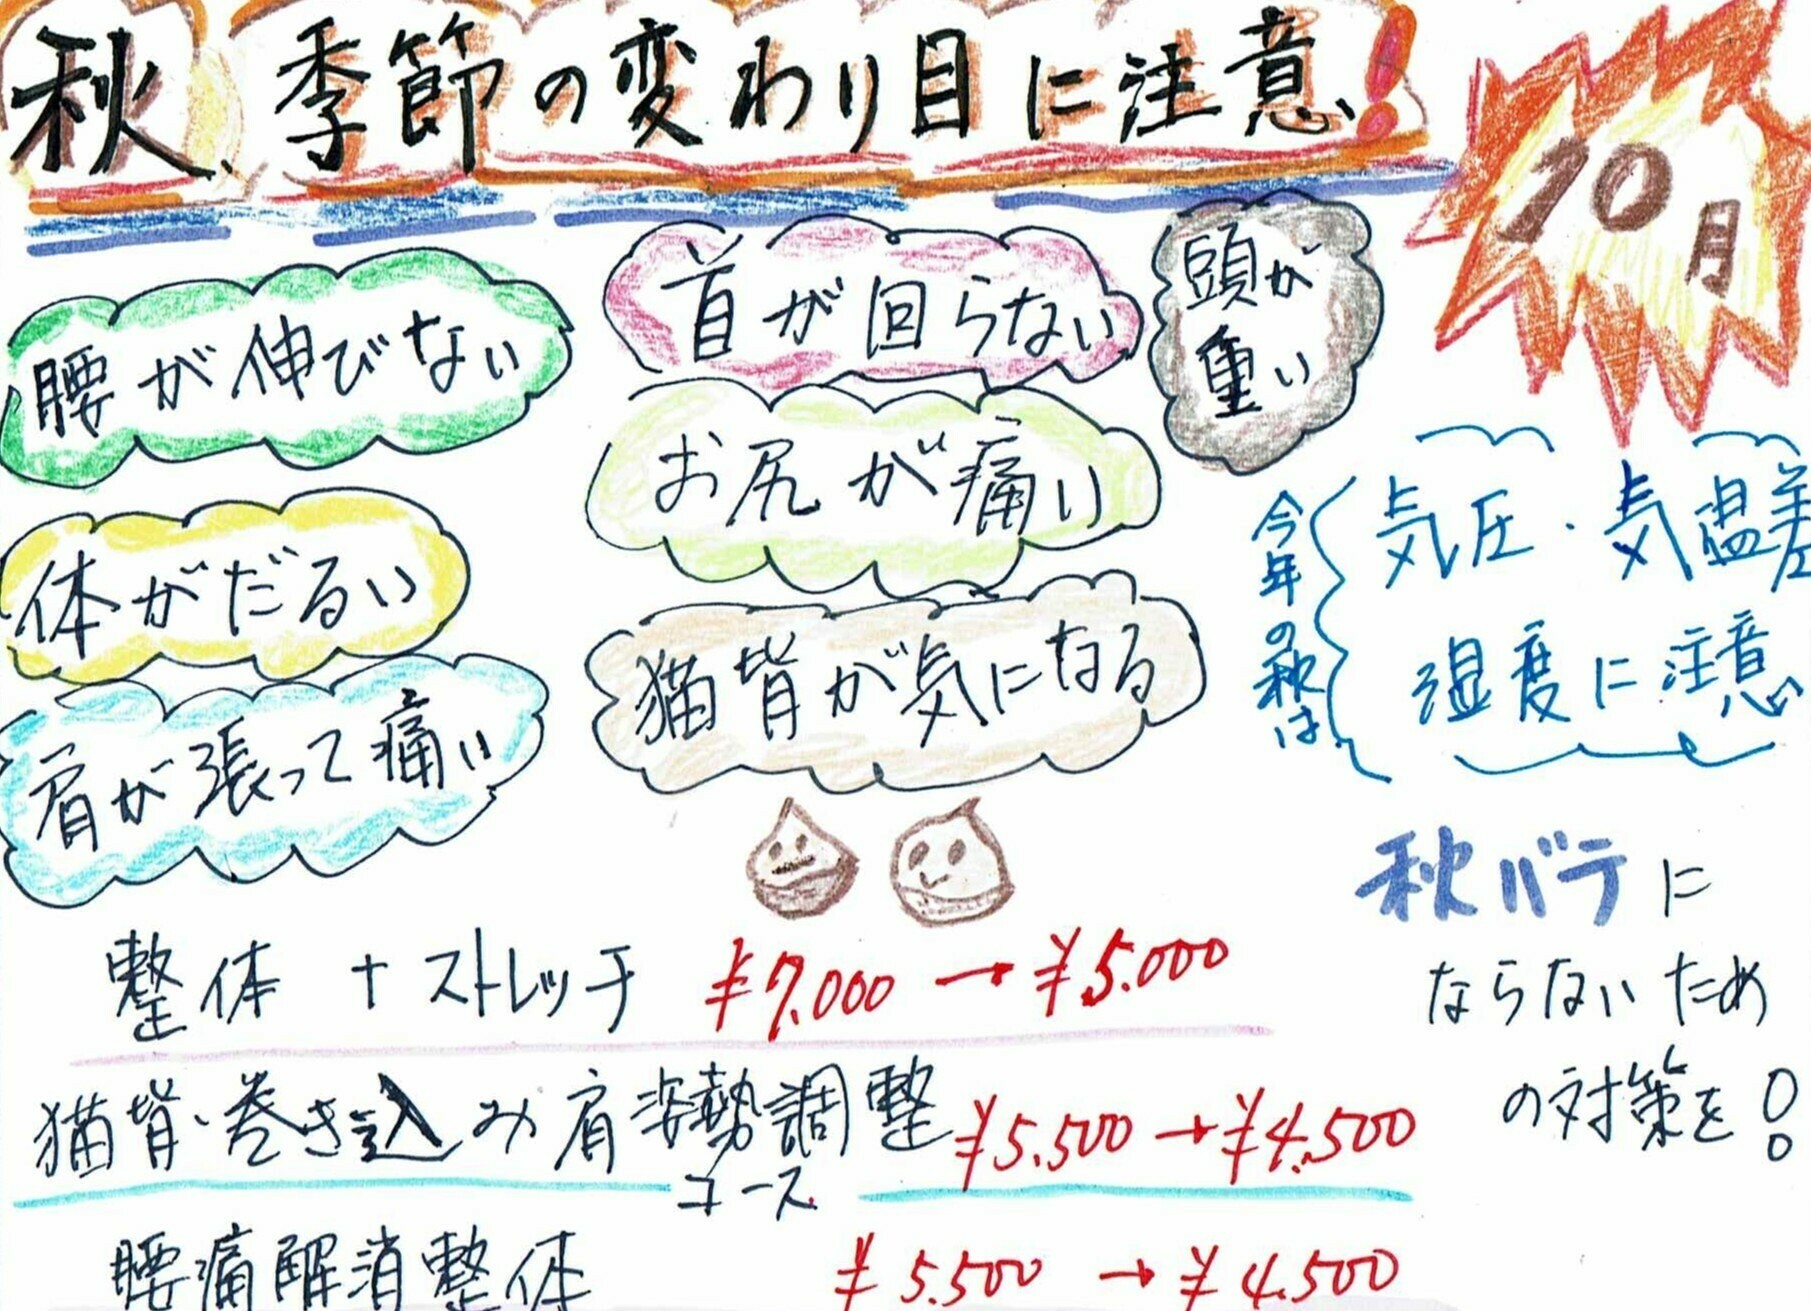 秋、季節の変わり目に注意!
10月
腰が伸びない
首が回らない
頭が
重い
お尻が痛い
体がだるい
猫背が気になる
肩が張って痛い
今年の秋は
気圧・気温差
湿度に注意
秋バテに
ならないため
の対策を!
整体+ストレッチ ¥7.000→¥5.000
猫背・巻き込み肩姿勢調整 ¥5.500→¥4.500
コース
腰痛解消整体 ¥5.500→¥4.500